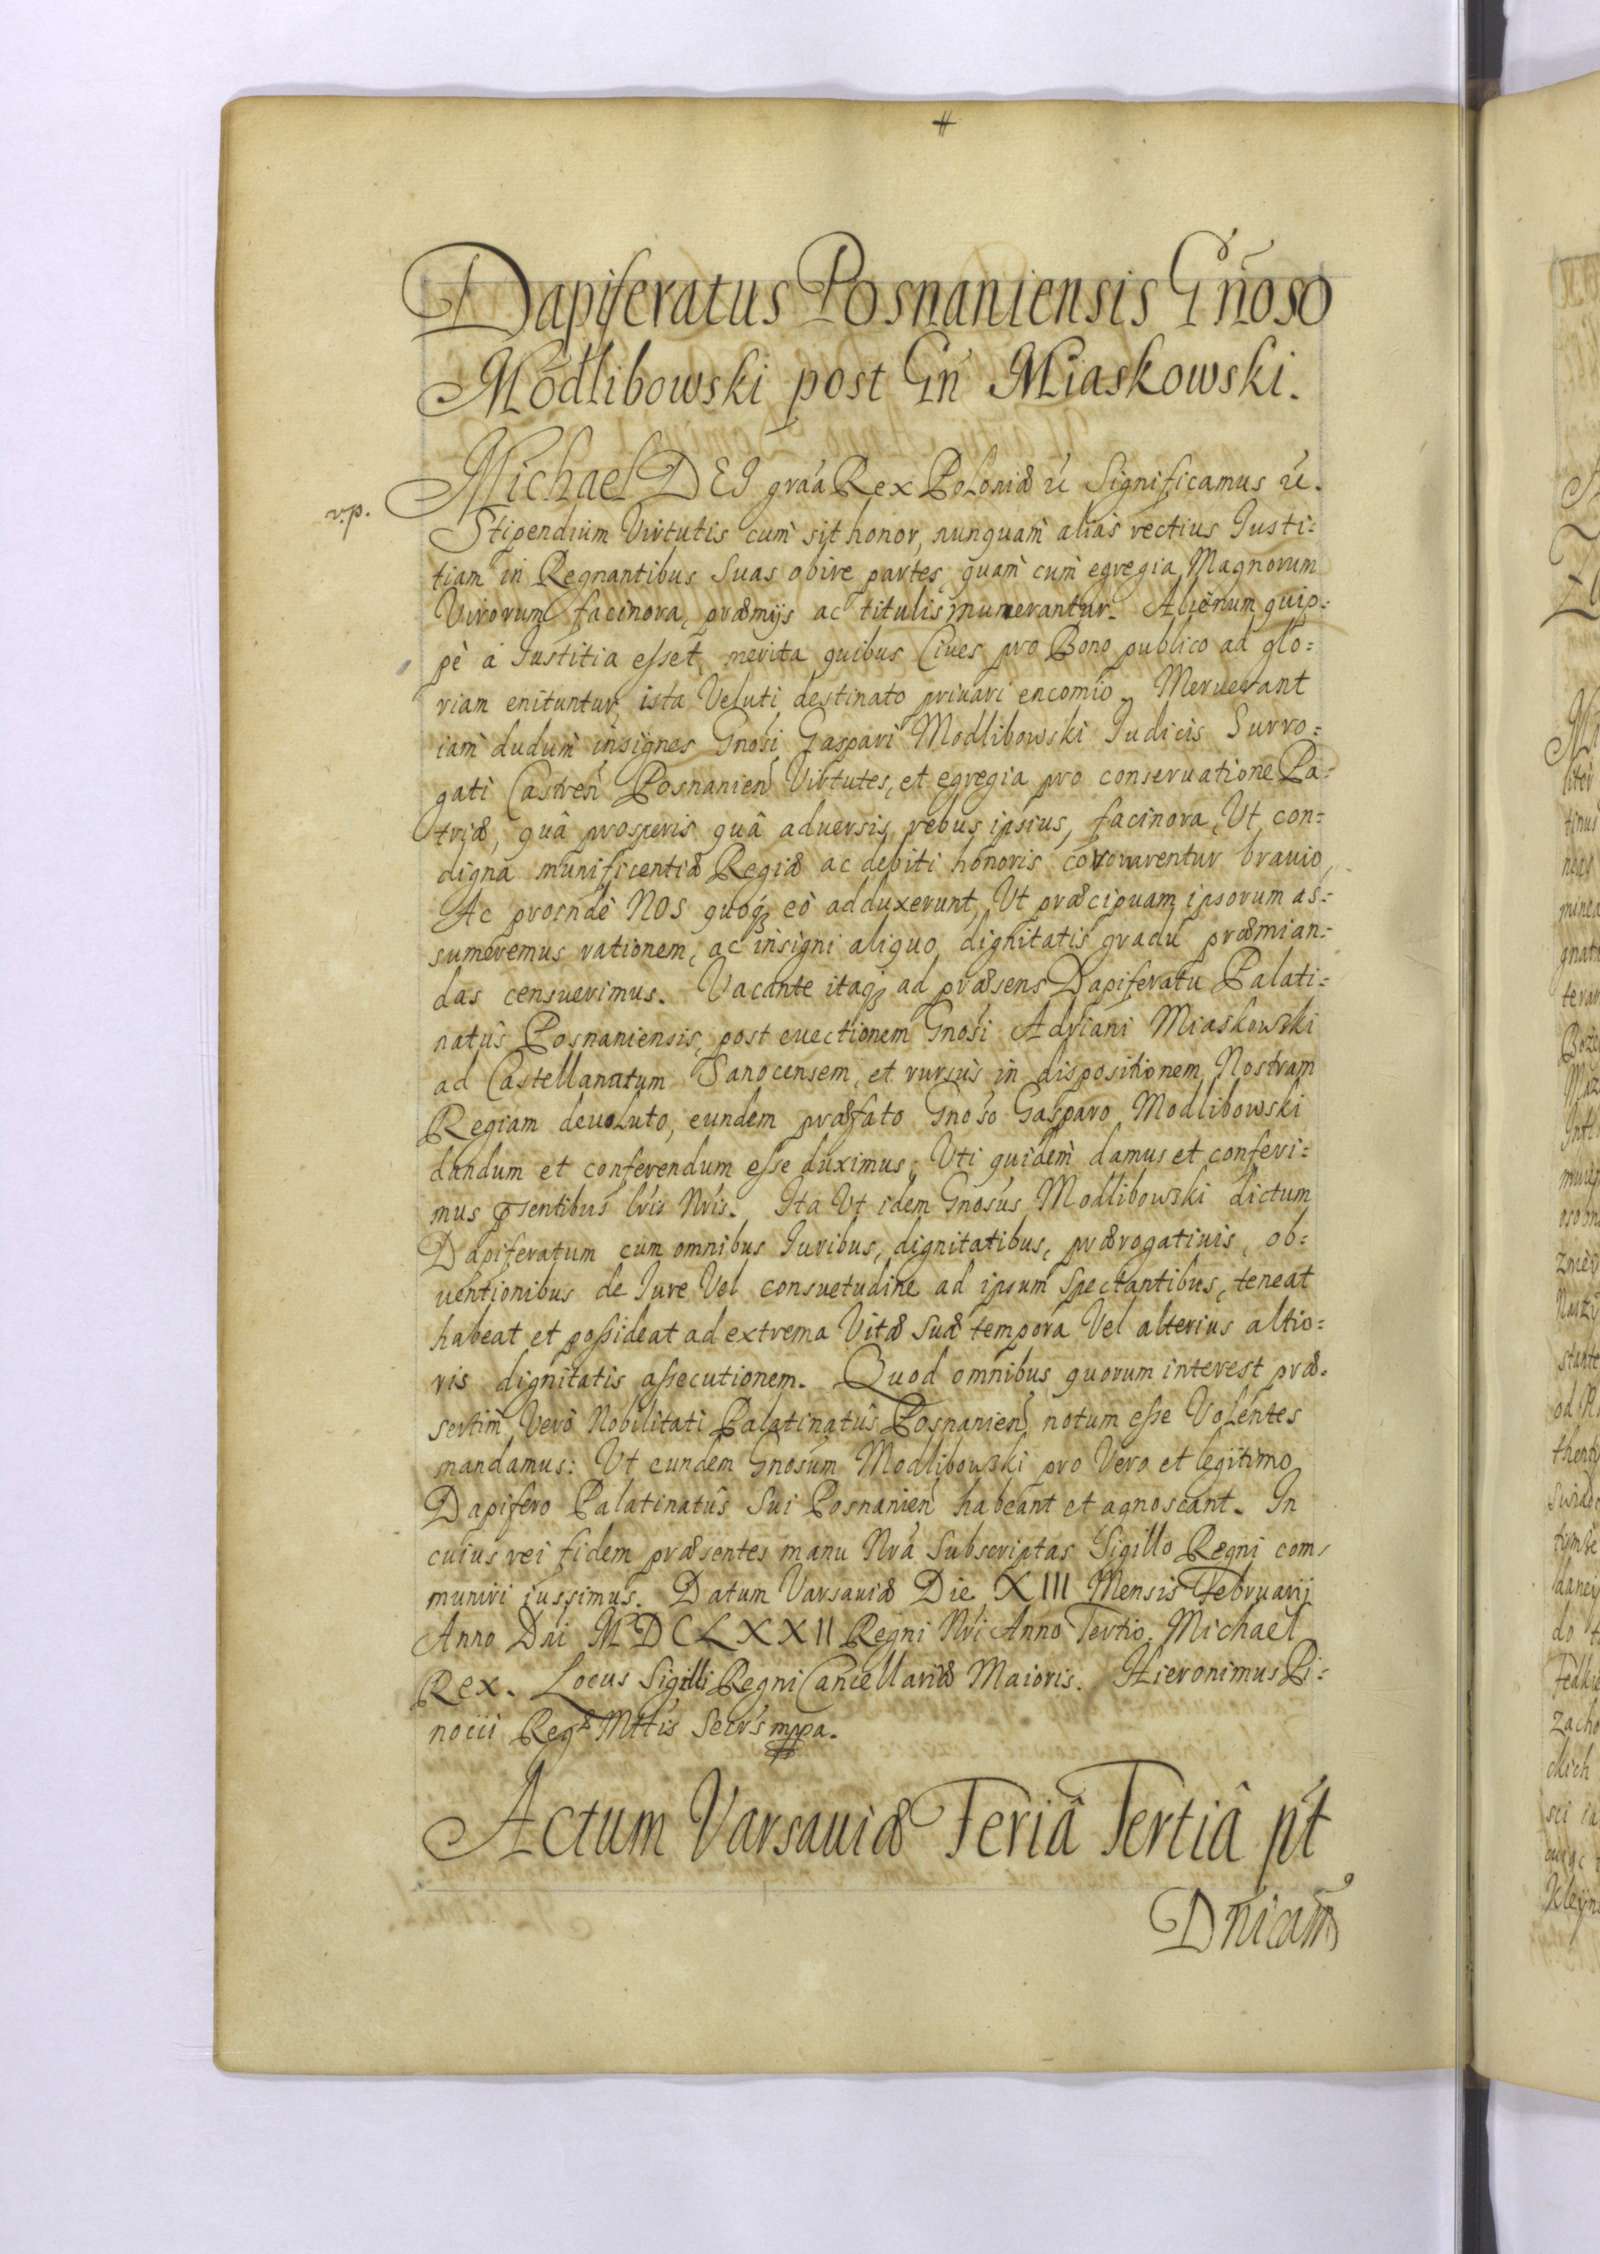 Dapiferatus Posnaniensis Gñoso
Modlibowski post Gń Miaskowski.
Michael DEI gráa Rex Poloniæ ú Significamus ú.
v.p.
Stipendium Virtutis cum̀ sit honor, nunquam̀ aliàs rectius Iusti=
tiam in Regnantibus Suas obire partes, quam̀ cum̀ egregia Magnorum
Virorum facinora, præmijs ac titulis munerantur. Alienum quip=
pè à Iustitia esset, merita quibus Cives pro Bono publico ad glo=
riam enituntur, ista Veluti destinato privari encomio. Meruerant
iam̀ dudum̀ insignes Gnosi Gaspari Modlibowski Iudicis Surro=
gati Castreń Posnanień Virtutes, et egregia pro conservatione Pa=
triæ, quâ prosperis quâ adversis rebus ipsius, facinora, Ut con=
digna munificentiæ Regiæ ac debiti honoris coronarentur bravio,
Ac proindè NOS quoqꝫ eò adduxerunt, Ut præcipuam ipsorum as=
sumeremus rationem, ac insigni aliquo dignitatis gradu præmian=
das censuerimus. Vacante itaqꝫ ad præsens Dapiferatu Palati=
natûs Posnaniensis, post evectionem Gnosi Adriani Miaskowski
ad Castellanatum Sanocensem, et rursùs in dispositionem Nostram
Regiam devoluto, eundem præfato Gnóso Gasparo Modlibowski
dandum et conferendum esse duximus; Uti quidem̀ damus et conferi=
mus pꝛsentibus lrís Nrís. Ita Ut idem Gnosús Modlibowski dictum
Dapiferatum cum omnibus Iuribus, dignitatibus, prærogativis, ob=
ventionibus de Iure Vel consuetudine ad ipsum spectantibus, teneat
habeat et possideat ad extrema Vitæ Suæ tempora Vel alterius altio=
ris dignitatis assecutionem. Quod omnibus quorum interest præ=
sertim̀ Verò Nobilitati Palatinatûs Posnanień notum esse Volentes
mandamus: Ut eundem Gnosúm Modlibowski pro Vero et legitimo
Dapifero Palatinatûs Sui Posnanień habeant et agnoscant. In
cuius rei fidem præsentes manu Nrá Subscriptas Sigillo Regni com=
muniri iussimus. Datum Varsaviæ Die XIII Mensis Februarij
Anno Dńi MDCLXXII Regni Nrí Anno Tertio. Michael
Rex. Locus Sigilli Regni Cancellariæ Maioris. Hieronimus Pi=
nocii Regꝫ Mttís Secrs mppa.
Actum Varsaviæ Feriâ Tertiâ pt́
Dnicam̃